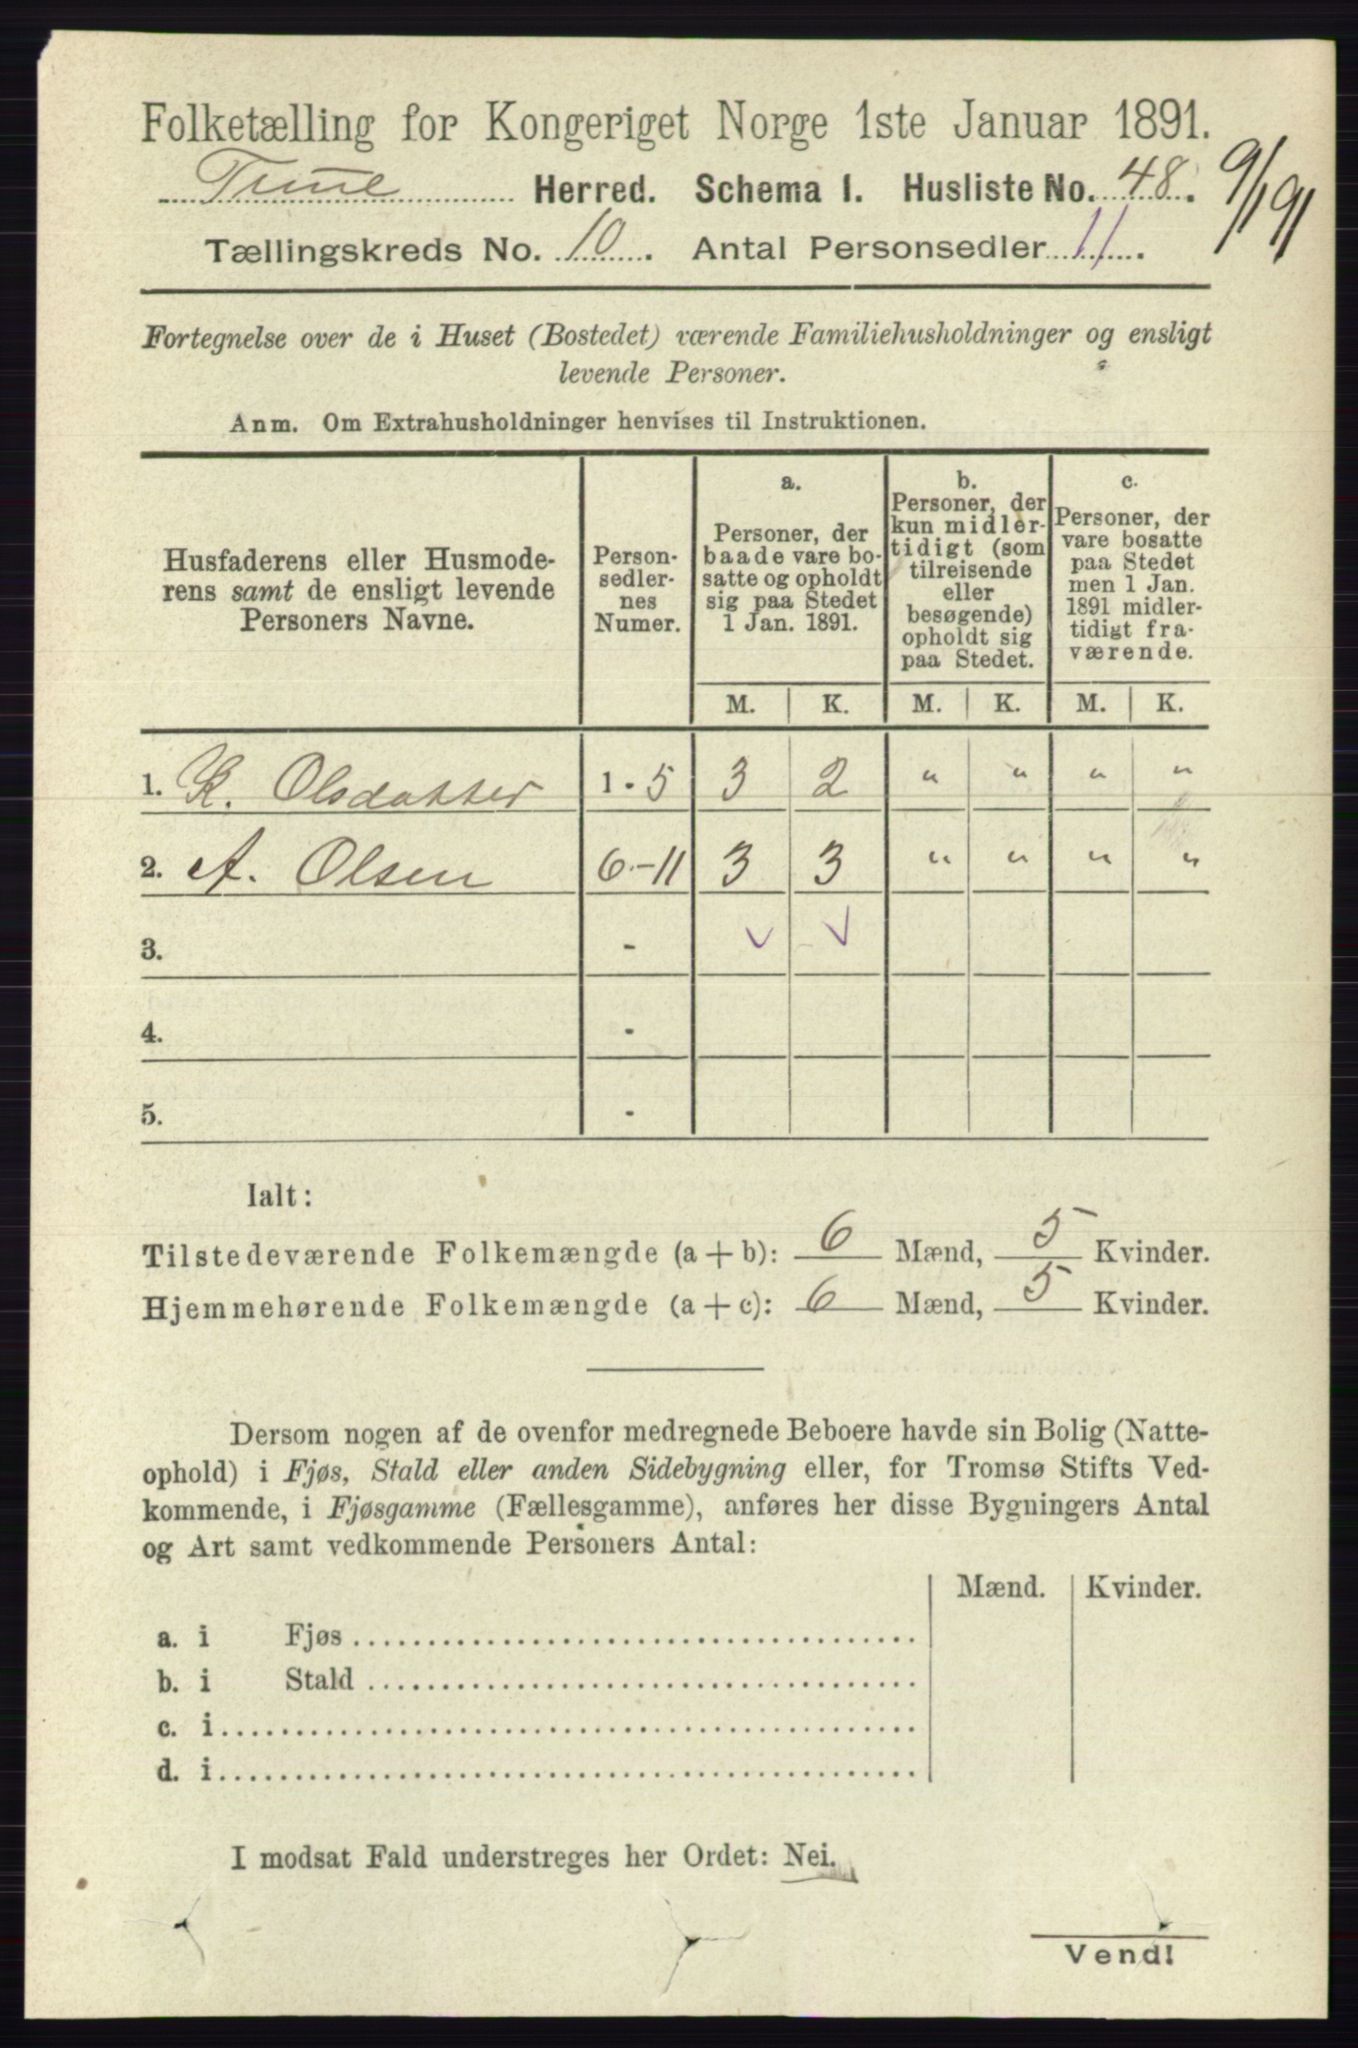 Folketælling for Kongeriget Norge 1ste Januar 1891.
Tune Herred. Schema I. Husliste No. 48.
9/1 91
Tællingskreds No. 10. Antal Personsedler 11.
Fortegnelse over de i Huset (Bostedet) værende Familiehusholdninger og ensligt
levende Personer.
Anm. Om Extrahusholdninger henvises til Instruktionen.
Husfaderens eller Husmode-
rens samt de ensligt levende
Personers Navne.
Person-
sedler-
nes
Numer.
a.
Personer, der
baade vare bo-
satte og opholdt
sig paa Stedet
1 Jan. 1891.
b.
Personer, der
kun midler-
tidigt (som
tilreisende
eller
besøgende)
opholdt sig
paa Stedet.
c.
Personer, der
vare bosatte
paa Stedet
men 1 Jan.
1891 midler-
tidigt fra-
værende.
M. K. M. K. M. K.
1. K. Olsdatter 1 - 5 3 2 " " " "
2. A. Olsen 6 - 11 3 3 " " " "
3. - v v
4. -
5. -
Ialt:
Tilstedeværende Folkemængde (a + b): 6 Mænd, 5 Kvinder.
Hjemmehørende Folkemængde (a + c): 6 Mænd, 5 Kvinder.
Dersom nogen af de ovenfor medregnede Beboere havde sin Bolig (Natte-
ophold) i Fjøs, Stald eller anden Sidebygning eller, for Tromsø Stifts Ved-
kommende, i Fjøsgamme (Fællesgamme), anføres her disse Bygningers Antal
og Art samt vedkommende Personers Antal:
Mænd. Kvinder.
a. i Fjøs
b. i Stald
c. i
d. i
I modsat Fald understreges her Ordet: Nei.
Vend!